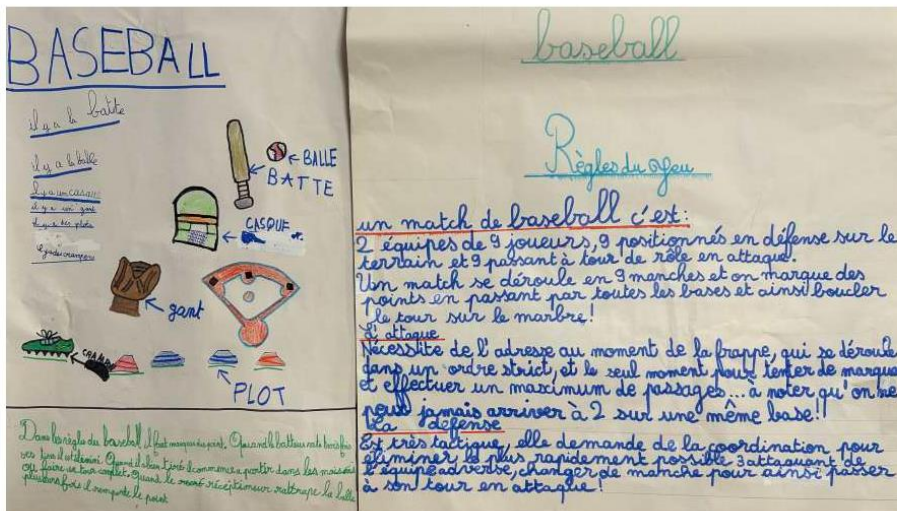 BASEBALL
il y a la batte
il y a la balle
il y a un casque
il y a un gant
il y a des plots
BALLE
BATTE
CASQUE
gant
PLOT
Dans les règle du baseball il faut marquer du point. Quand le batteur
Quand il a tiré il commence a partir dans les
ou faire un tour complet. Quand le récéptimeur rattrape la balle
plusieurs fois il remporte le point
baseball
Règles du Jeu
un match de baseball c'est:
2 équipes de 9 joueurs, 9 positionnés en défense sur le
terrain et 9 passant à tour de rôle en attaque.
Un match se déroule en 9 manches et on marque des
points en passant par toutes les bases et ainsi boucler
le tour sur le marbre!
L'attaque
Nécessite de l'adresse au moment de la frappe, qui se déroule
dans un ordre strict, et le seul moment pour tenter de marquer
et effectuer un maximum de passages... à noter qu'on ne
peut jamais arriver à 2 sur une même base!!
La défense
Est très tactique, elle demande de la coordination pour
éliminer le plus rapidement possible 3 attaquant de
l'équipe adverse, changer de manche pour ainsi passer
à son tour en attaque!